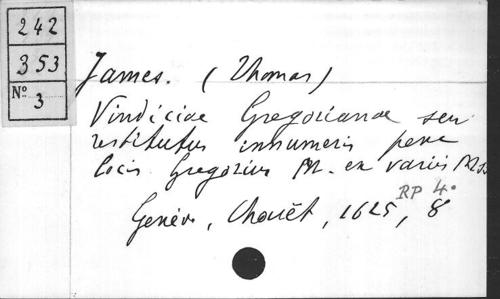 242
353
Nº
3
James. (Thomas)
Vindiciae Gregorianae seu
restitutus innumeris pene
locis Gregorius M. ex variis Mss
RP 4º
Genève, Chouët, 1625, 8